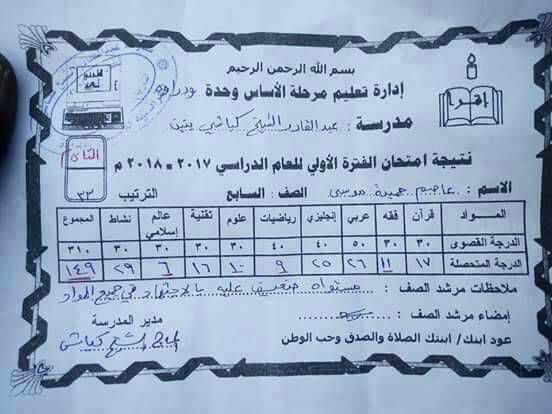 بسم الله الرحمن الرحيم
إدارة تعليم مرحلة الأساس وحدة
اقرأ
مدرسة : عبد القادر الشيخ كباشي بنين
نتيجة امتحان الفترة الأولي للعام الدراسي ٢٠١٧ - ٢٠١٨ م
الاسم : عاصم حميدة موسى الصف : السابع الترتيب ٣٢
المواد قرآن فقه عربي إنجليزي رياضيات علوم تقنية عالم إسلامي نشاط المجموع
الدرجة القصوى ٣٠ ٣٠ ٥٠ ٤٠ ٤٠ ٣٠ ٣٠ ٣٠ ٣٠ ٣١٠
الدرجة المتحصلة ١٧ ١١ ٢٦ ٢٥ ٩ ١٠ ١٦ ٦ ٢٩ ١٤٩
ملاحظات مرشد الصف : مستواه ضعيف عليه بالاجتهاد في جميع المواد
إمضاء مرشد الصف :
مدير المدرسة
عود ابنك/ ابنتك الصلاة والصدق وحب الوطن